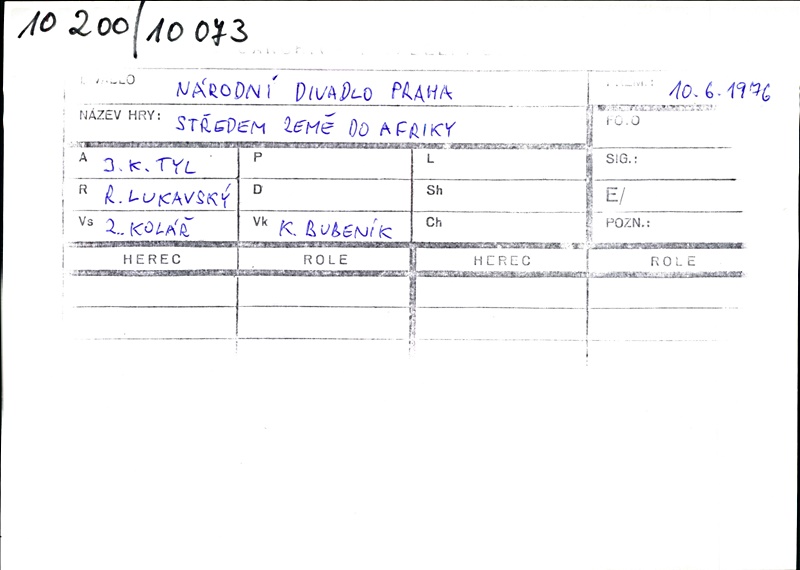 10 200/10 073
NÁRODNÍ DIVADLO PRAHA 10.6.1976
NÁZEV HRY: STŘEDEM ZEMĚ DO AFRIKY FOTO
A J. K. TYL P L SIG.:
R R. LUKAVSKÝ D Sh E/
Vs Z. KOLÁŘ Vk K. BUBENÍK Ch POZN.:
HEREC ROLE HEREC ROLE